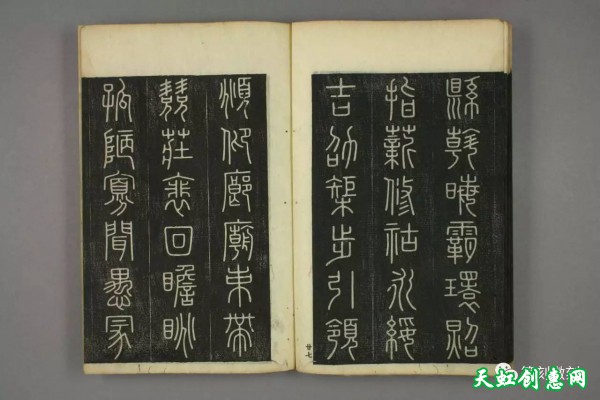 縣斡晦霸環照
指薪修祜永綏
吉劭榘步引領
廿七
頫仰廊廟束帶
矜莊裵回瞻眺
孤陋寡聞愚冡
天虹创惠网